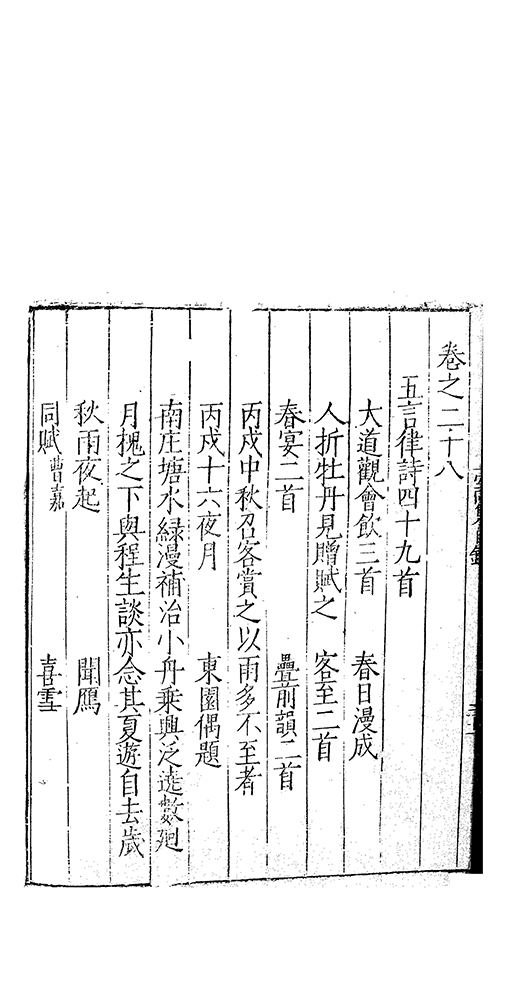 卷之二十八
五言律詩四十九首
大道觀會飲三首　春日漫成
人折牡丹見贈賦之　客至二首
春宴二首　疊前韻二首
丙戌中秋召客賞之以雨多不至者
丙戌十六夜月　東園偶題
南庄塘水綠漫補治小舟乘興泛遶數廻
月槐之下與程生談亦念其夏遊自去歲
秋雨夜起　聞鴈
同賦曹嘉　喜雪